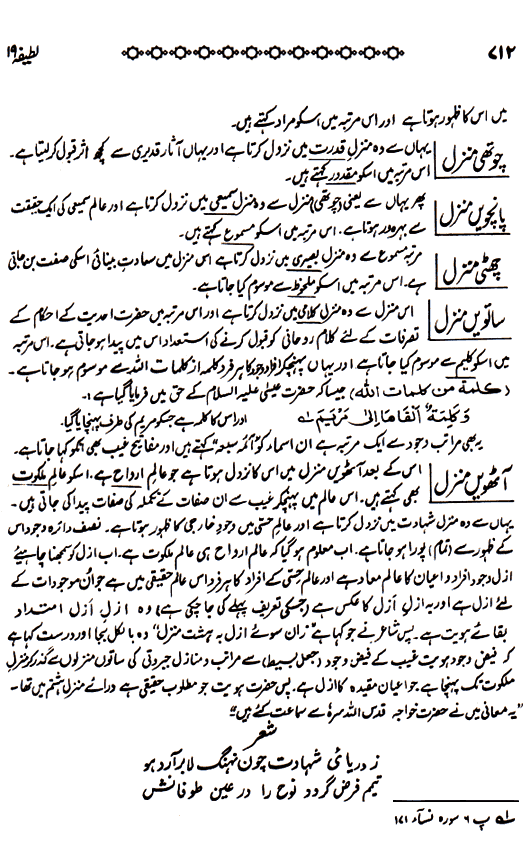 ۷۱۲
لطیفہ ۱۹
میں اس کا ظہور ہوتا ہے اور اس مرتبہ میں اسکو مراد کہتے ہیں۔
چوتھی منزل
یہاں سے وہ منزل قدرت میں نزول کرتا ہے اور یہاں آثار قدیری سے کچھ اثر قبول کر لیتا ہے۔
اس مرتبہ میں اسکو مقدور کہتے ہیں۔
پانچویں منزل
پھر یہاں سے یعنی (چوتھی منزل) سے وہ منزل سمیعی میں نزول کرتا ہے اور عالم سمیعی کی ایک حقیقت
سے بہرہ ور ہوتا ہے۔ اس مرتبہ میں اسکو مسموع کہتے ہیں۔
چھٹی منزل
مرتبۂ مسموع سے وہ منزل بصیری میں نزول کرتا ہے اس منزل میں سعادتِ بینائی اسکی صفت بن جاتی
ہے۔ اس مرتبہ میں اسکو ملحوظ سے موسوم کیا جاتا ہے۔
ساتویں منزل
اس منزل سے وہ منزل کلامی میں نزول کرتا ہے اور اس مرتبہ میں حضرت احدیت کے احکام کے
تصرفات کے لئے کلام روحانی کو قبول کرنے کی استعداد اس میں پیدا ہو جاتی ہے۔ اس مرتبہ
میں اسکو کلیم سے موسوم کیا جاتا ہے اور یہاں پہنچکر افراد وجود کا ہر فرد کلمہ از کلمات اللہ سے موسوم ہو جاتا ہے۔
(كلمة من كلمات الله) جیسا کہ حضرت عیسٰی علیہ السلام کے حق میں فرمایا گیا ہے:
وَكَلِمَتُهُ اَلْقَاهَا اِلىٰ مَرْيَمَ ؎۱ اور اس کا کلمہ ہے جسکو مریم کی طرف پہنچایا گیا۔
یہ بھی مراتب وجود سے ایک مرتبہ ہے ان اسماء کو "ائمہ سبعہ" کہتے ہیں اور مفاتیح غیب بھی انکو کہا جاتا ہے۔
آٹھویں منزل
اس کے بعد آٹھویں منزل میں اس کا نزول ہوتا ہے جو عالم ارواح ہے۔ اسکو عالم ملکوت
بھی کہتے ہیں۔ اس عالم میں پہنچکر غیب سے ان صفات کے تکملہ کی صفات پیدا کی جاتی ہیں۔
یہاں سے وہ منزل شہادت میں نزول کرتا ہے اور عالم حسّی میں وجود خارجی کا ظہور ہوتا ہے۔ نصف دائرہ وجود اس
کے ظہور سے (تمام) پورا ہو جاتا ہے۔ اب معلوم ہو گیا کہ عالم ارواح ہی عالم ملکوت ہے۔ اب ازل کو سمجھنا چاہیئے
ازل وجود افراد و اعیان کا عالم معاد ہے اور عالم حسّی کے افراد کا ہر فرد اس عالم حقیقی میں ہے جو اُن موجودات کے
لئے ازل ہے اور یہ ازلِ اَزل کا عکس ہے (جسکی تعریف پہلے کی جا چکی ہے) وہ ازلِ اَزل امتداد
بقائے ہویت ہے۔ پس شاعر نے جو کہا ہے "زان سوئے ازل بہ ہشت منزل" وہ بالکل بجا اور درست کہا ہے
کہ فیض وجود ہویت غیب کے فیض وجود (جعل بسیط) سے مراتب و منازل جبروتی کی ساتوں منزلوں سے گذر کر منزل
ملکوت تک پہنچا ہے جو اعیان مقیدہ کا ازل ہے۔ پس حضرت ہویت جو مطلوب حقیقی ہے ورائے منزل ہشتم میں تھا۔
"یہ معانی میں نے حضرت خواجہ قدس اللہ سرہ سے سماعت کئے ہیں"
شعر
ز دریائی شہادت چون نہنگ لا برآرد ہو
تیمم فرض گردد نوح را در عین طوفانش
؎۱ پ ۶ سورہ نسآء ۱۷۱